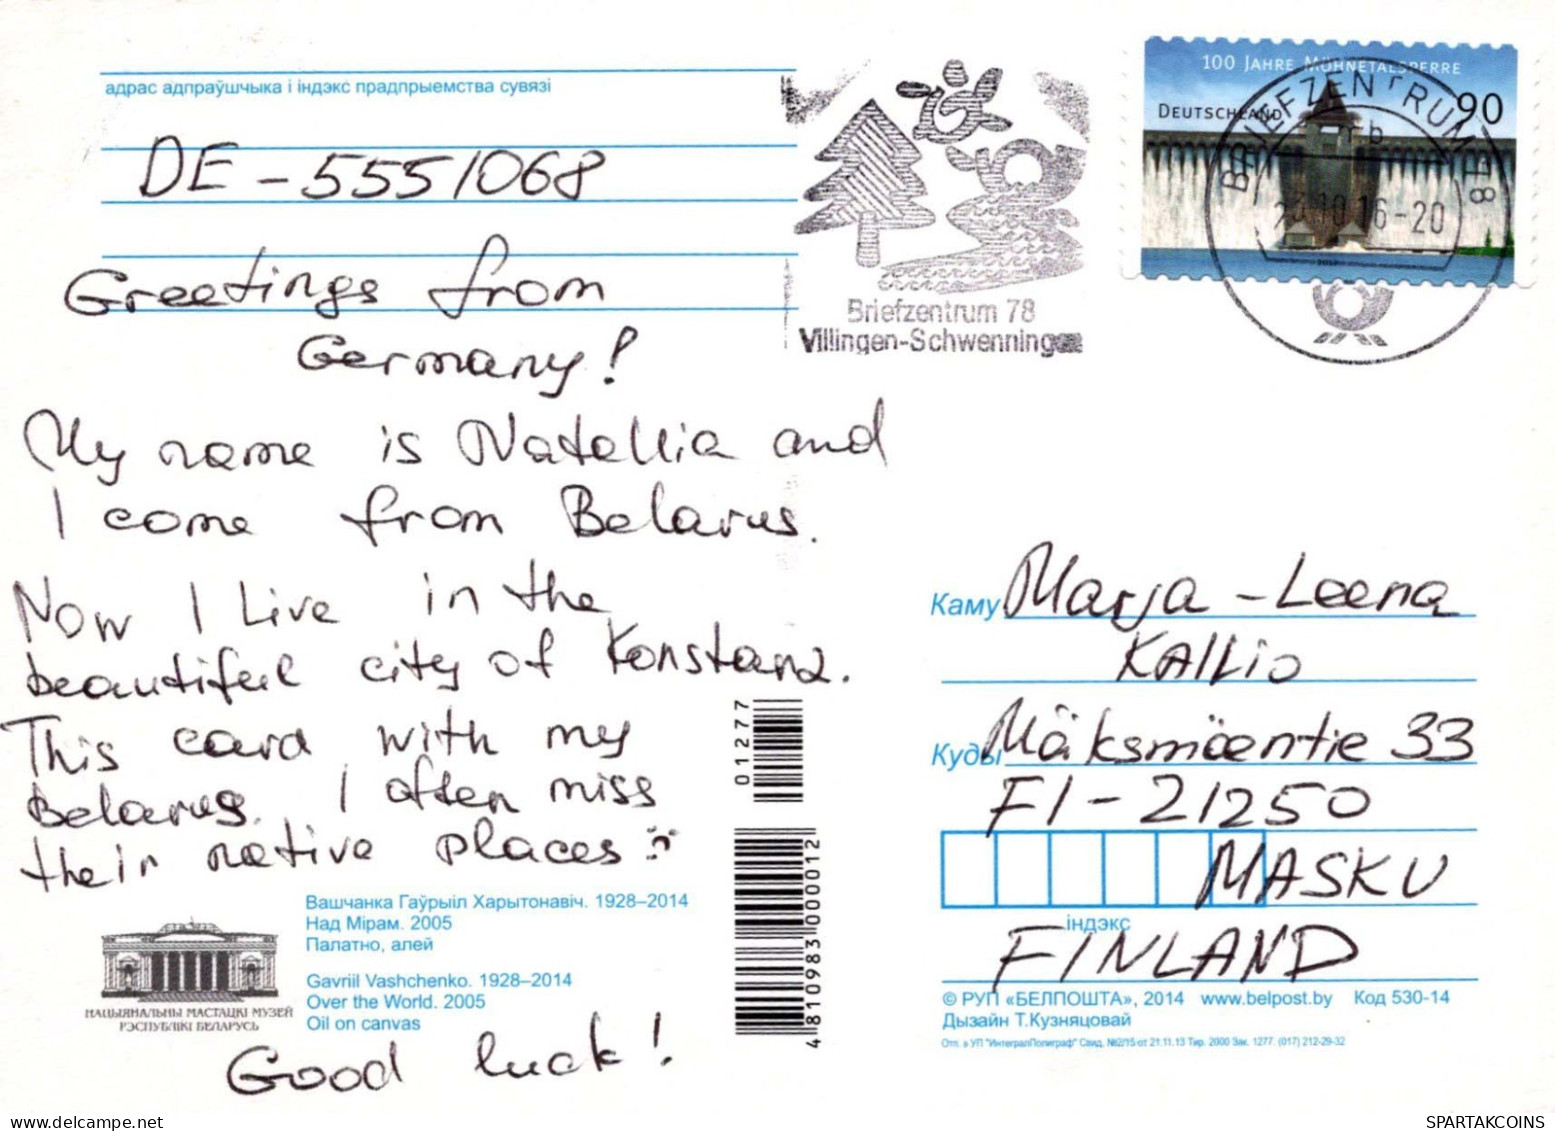 адрас адпраўшчыка і індэкс прадпрыемства сувязі
DE - 5551068
Greetings from
Germany!
My name is Natallia and
I come from Belarus.
Now I live in the
beautiful city of Konstanz.
This card with my
Belarus. I often miss
their native places :
Вашчанка Гаўрыіл Харытонавіч. 1928–2014
Над Мірам. 2005
Палатно, алей
Gavriil Vashchenko. 1928–2014
Over the World. 2005
Oil on canvas
НАЦЫЯНАЛЬНЫ МАСТАЦКІ МУЗЕЙ
РЭСПУБЛІКІ БЕЛАРУСЬ
Good luck!
01277
4 810983 000012
Briefzentrum 78
Villingen-Schwenningen
100 JAHRE MÖHNETALSPERRE
DEUTSCHLAND
90
BRIEFZENTRUM 78
rb
10.16-20
Каму Marja-Leena
KALLIO
Куды Mäksmäentie 33
FI-21250
MASKU
індэкс
FINLAND
© РУП «БЕЛПОШТА», 2014 www.belpost.by Код 530-14
Дызайн Т.Кузняцовай
Отп. в УП "ИнтегралПолиграф" Свид. №2/15 от 21.11.13 Тир. 2000 Зак. 1277. (017) 212-29-32
SPARTAKCOINS
www.delcampe.net